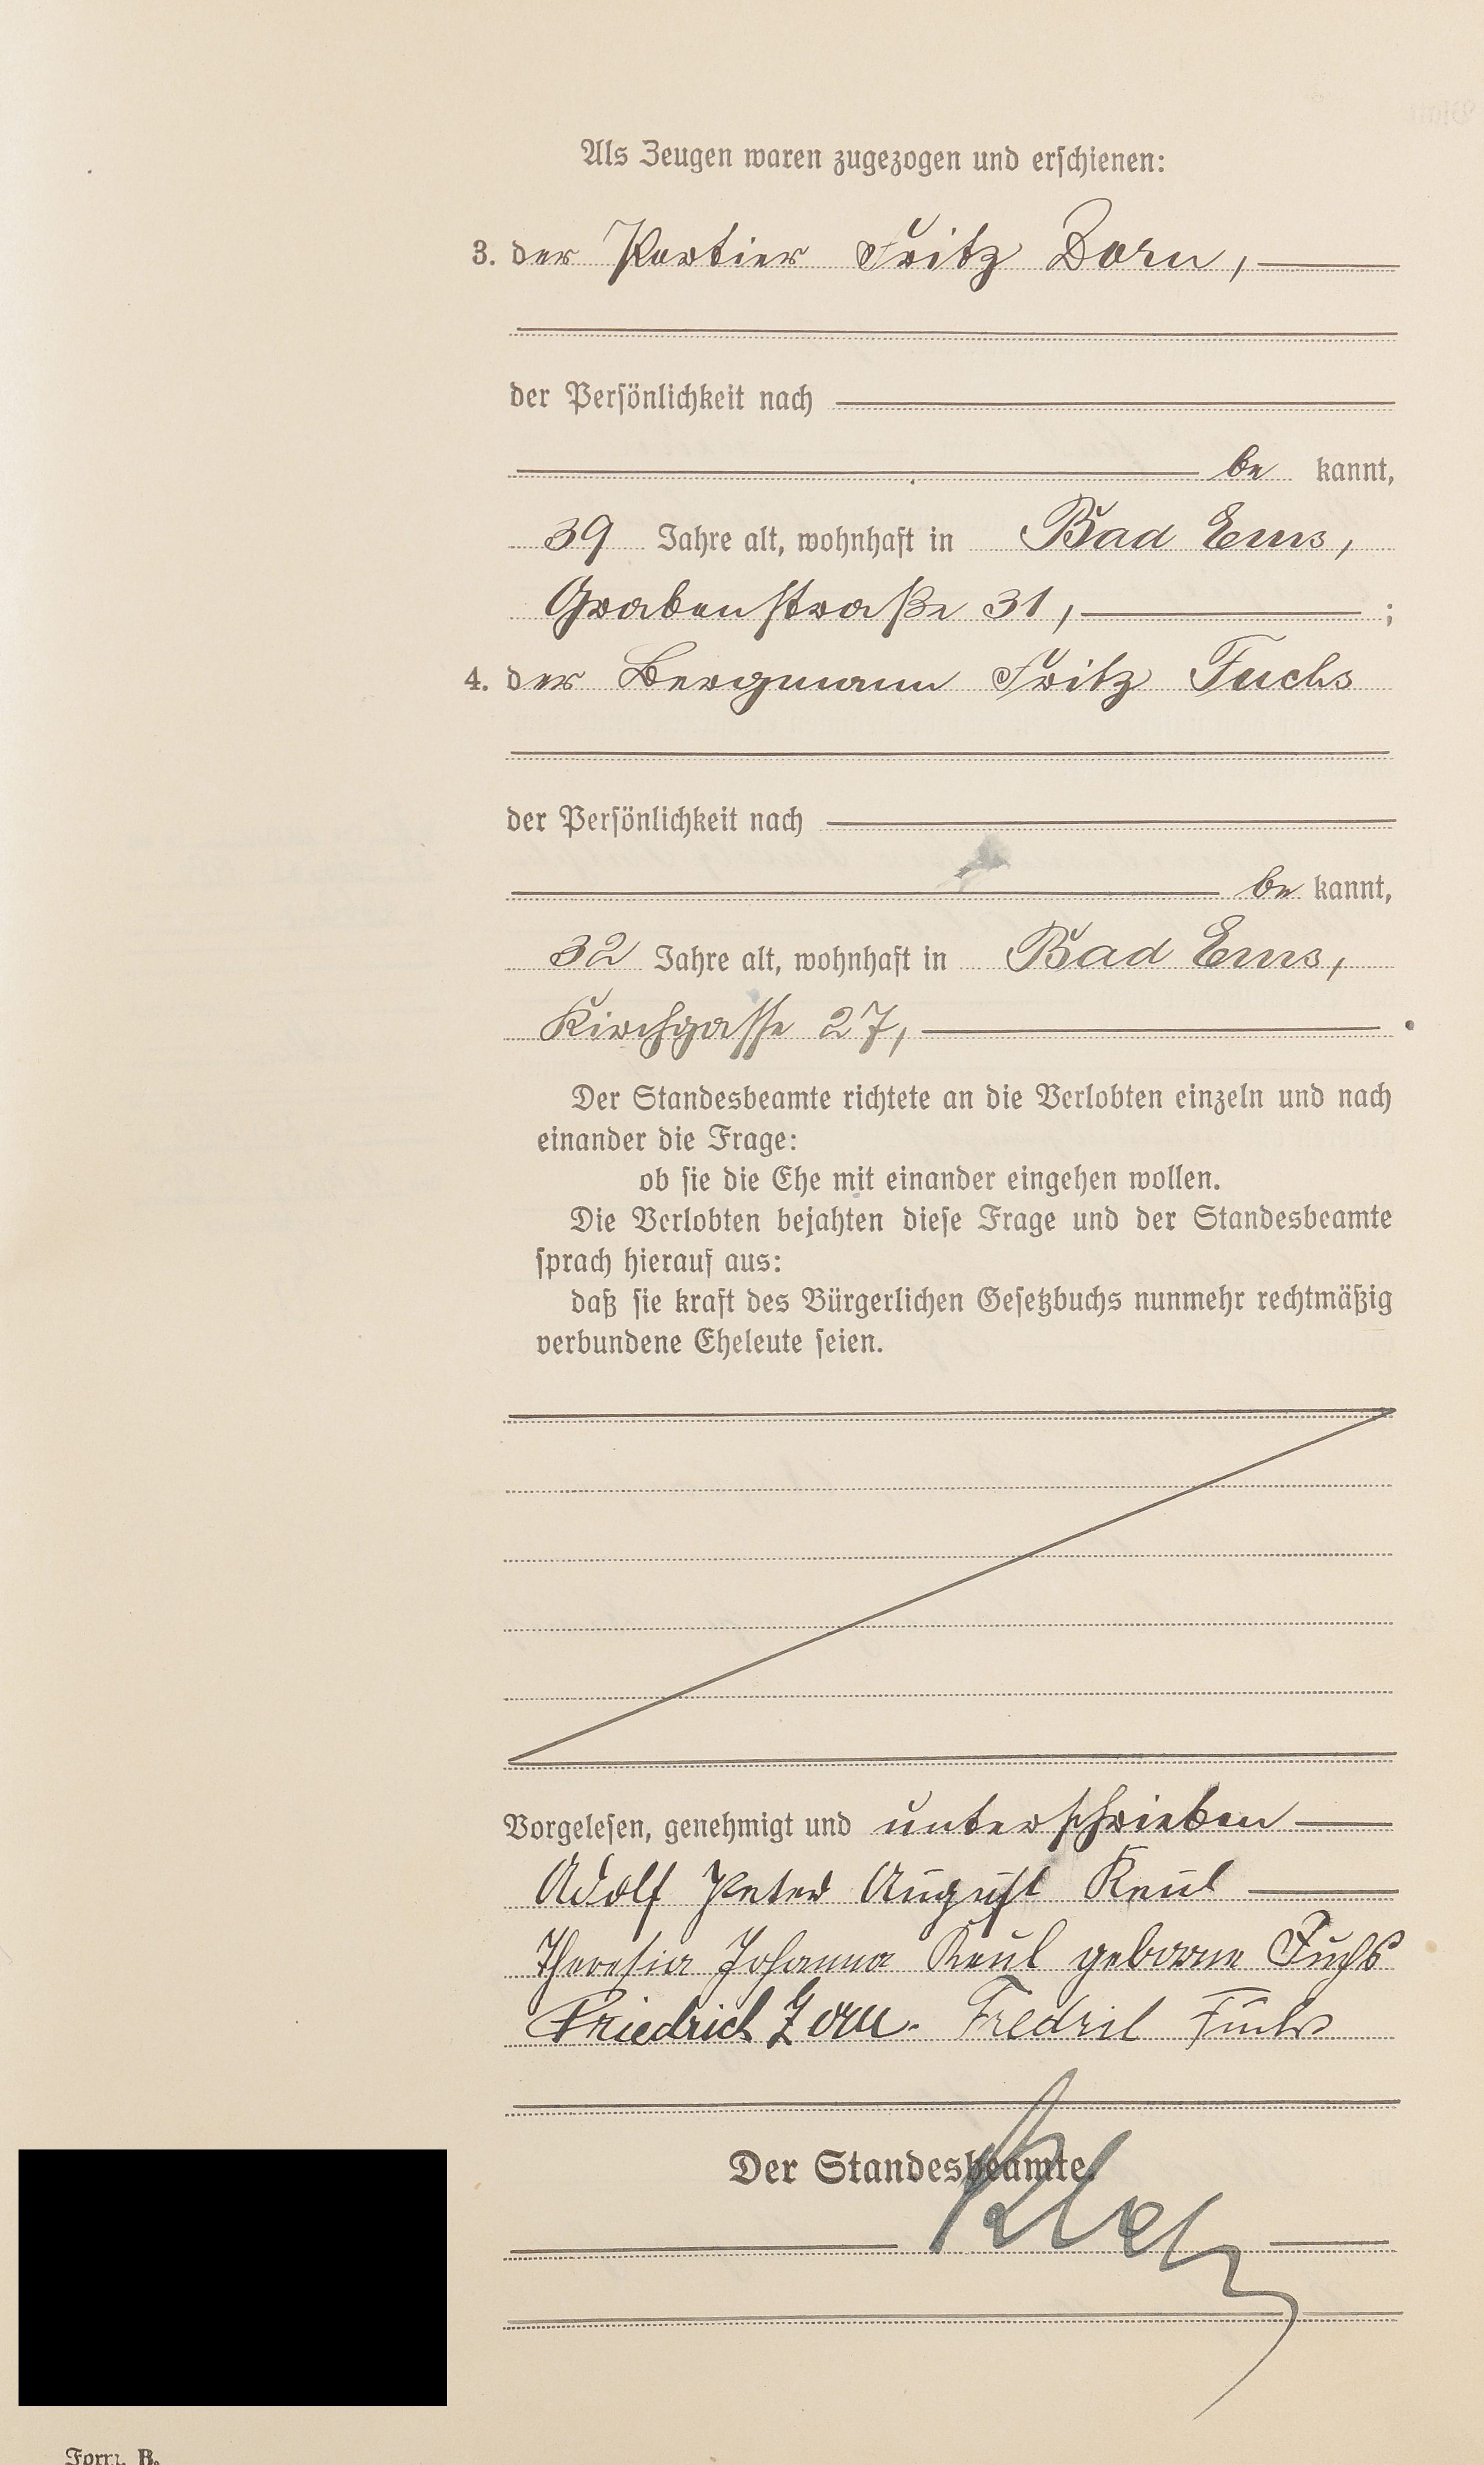 Als Zeugen waren zugezogen und erschienen:
3. der Portier Fritz Zorn,
der Persönlichkeit nach
be kannt,
39 Jahre alt, wohnhaft in Bad Ems,
Grabenstraße 31, ;
4. der Bergmann Fritz Fuchs
der Persönlichkeit nach
be kannt,
32 Jahre alt, wohnhaft in Bad Ems,
Kirchgasse 27, .
Der Standesbeamte richtete an die Verlobten einzeln und nach
einander die Frage:
ob sie die Ehe mit einander eingehen wollen.
Die Verlobten bejahten diese Frage und der Standesbeamte
sprach hierauf aus:
daß sie kraft des Bürgerlichen Gesetzbuchs nunmehr rechtmäßig
verbundene Eheleute seien.
Vorgelesen, genehmigt und unterschrieben
Adolf Peter August Keul
Theresia Johanna Keul geborne Fuchs
Friedrich Zorn. Fuchs
Der Standesbeamte.
Form. B.